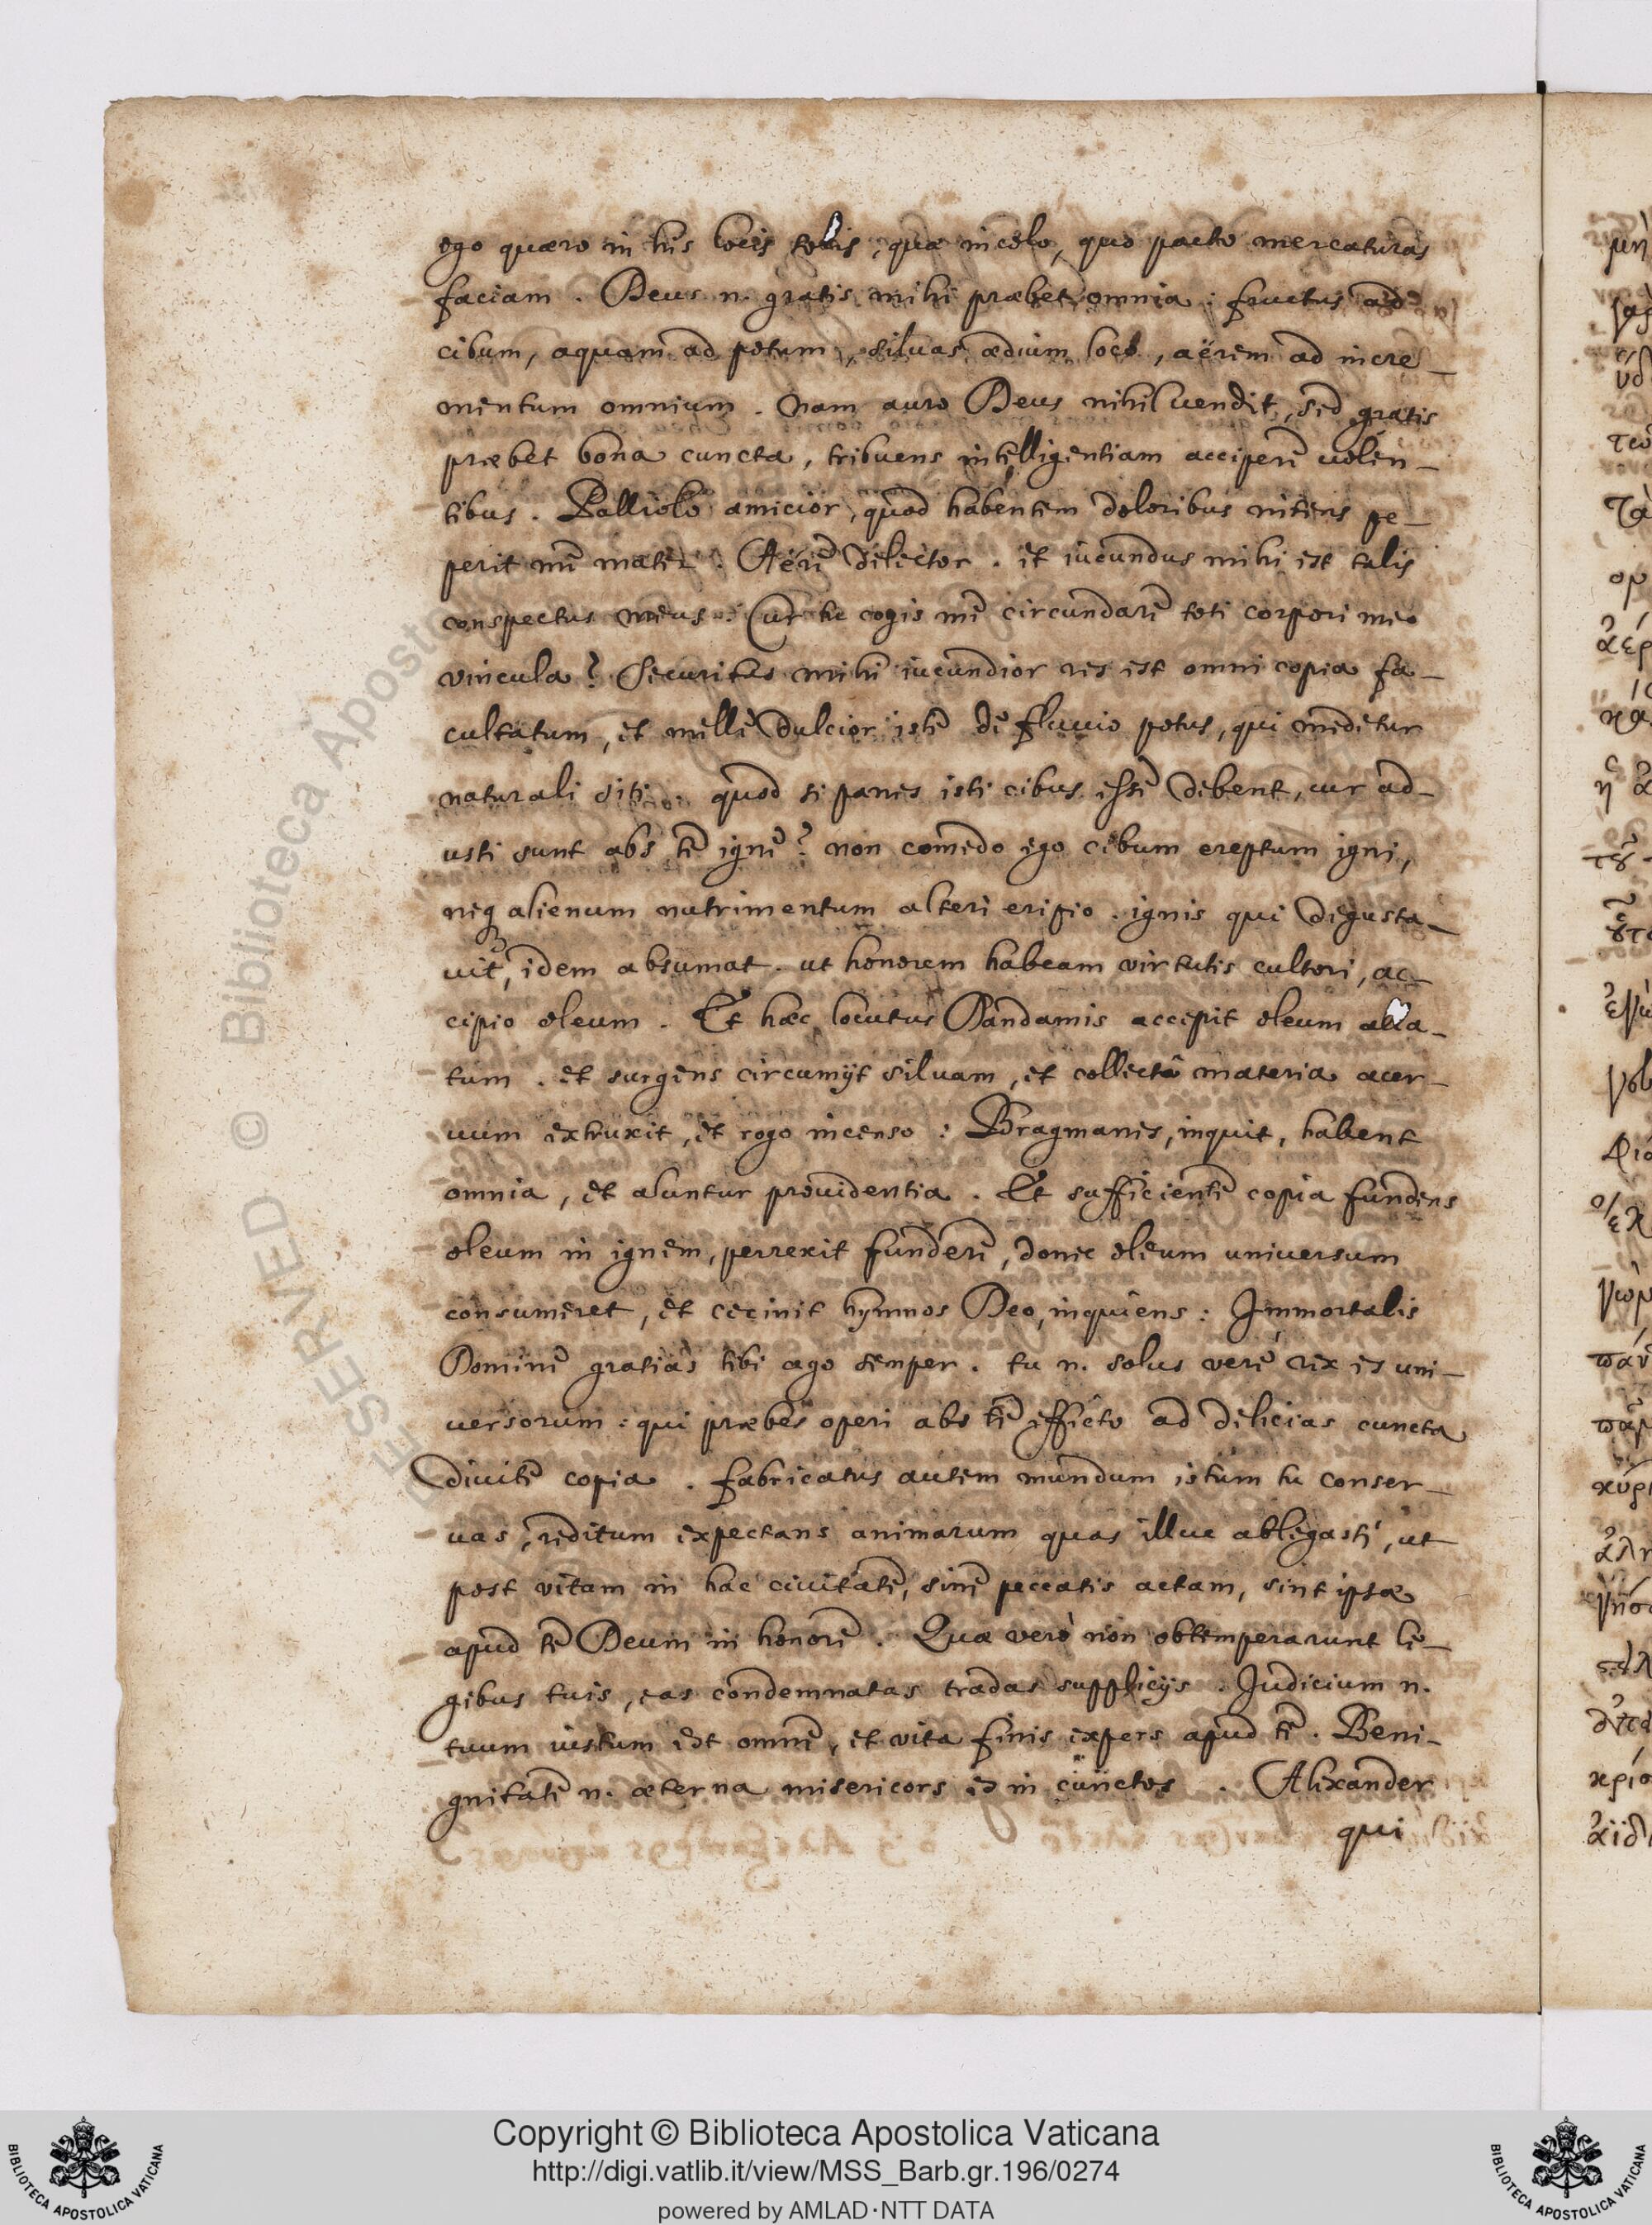 ego quæro in his locis solis, quæ incolo, quo pacto mercaturas
faciam. Deus n. gratis mihi præbet omnia: fructus ad
cibum, aquam ad potum, siluas ædium loco, aërem ad incre-
mentum omnium. Nam auro Deus nihil uendit, sed gratis
præbet bona cuncta, tribuens intelligentiam accipere uolen-
tibus. Palliolo amicior, quod habentem doloribus nitens pe-
perit me mater. Aëre delector. et iucundus mihi est talis
conspectus meus. Cur tu cogis me circundare toti corpori meo
vincula? Securitas mihi iucundior res est omni copia fa-
cultatum, et melle dulcior iste de fluuio potus, qui medetur
naturali siti. quod si panes isti cibus esse debent, cur ad-
usti sunt abs te igne? non comedo ego cibum ereptum igni,
neq alienum nutrimentum alteri eripio. ignis qui degusta-
uit, idem absumat. ut honorem habeam virtutis cultori, ac-
cipio oleum. Et hæc locutus Dandamis accepit oleum alla-
tum. et surgens circumijt siluam, et collectâ materia acer-
uum extruxit, et rogo incenso: Bragmanes, inquit, habent
omnia, et aluntur prouidentia. Et sufficiente copia fundens
oleum in ignem, perrexit fundere, donec oleum universum
consumeret, et cecinit hymnos Deo, inquiens: Immortalis
Domine gratias tibi ago semper. tu n. solus verè rex es uni-
versorum: qui præbes operi abs te effecto ad delicias cuncta
diuite copia. fabricatus autem mundum istum tu conser-
uas, reditum expectans animarum quas illuc ablegasti, ut
post vitam in hac ciuitate, sine peccatis actam, sint ipsæ
apud te Deum in honore. Quæ verò non obtemperarunt le-
gibus tuis, eas condemnatas tradas supplicijs. Judicium n.
tuum iustum est omne, et vita finis expers apud te. Beni-
gnitate n. æterna misericors es in cunctos. Alexander
qui
Copyright © Biblioteca Apostolica Vaticana
http://digi.vatlib.it/view/MSS_Barb.gr.196/0274
powered by AMLAD·NTT DATA